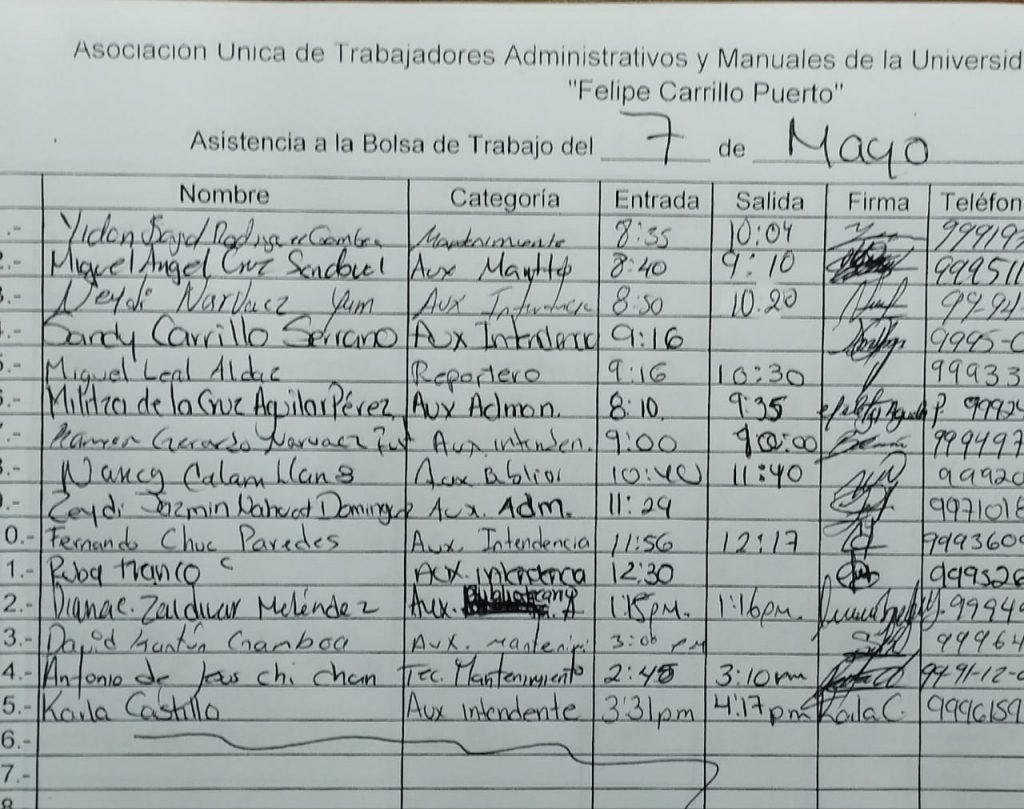 Asociación Unica de Trabajadores Administrativos y Manuales de la Universid
"Felipe Carrillo Puerto"
Asistencia a la Bolsa de Trabajo del 7 de Mayo
Nombre Categoría Entrada Salida Firma Teléfon
.- Mantenimiento 8:35 10:04 99919
2.- Miguel Angel Cruz Sandoval Aux Mantto 8:40 9:10 999511
3.- Neydi Narvaez Yam Aux Intendencia 8:50 10:20 99-94-
4.- Sandy Carrillo Serrano Aux Intendenc 9:16 9995-0
5.- Miguel Leal Aldac Reportero 9:16 10:30 99933
6.- Militza de la Cruz Aguilar Pérez Aux Admon. 8:10 9:35 P. 99924
7.- Gerardo Narvaez Aux. intenden. 9:00 10:00 999497
8.- Nancy Calam Llanes Aux Biblio 10:40 11:40 99920
9.- Zeydi Jazmin Nahuat Dominguez Aux. Adm. 11:29 9971018
0.- Fernando Chuc Paredes Aux. Intendencia 11:56 12:17 9993609
1.- Ruby Franco C Aux. intendencia 12:30 999526
2.- Diana C. Zaldivar Meléndez Aux. 1:15pm. 1:16pm. 99949
3.- David Kantún Gamboa Aux. mantenimi 3:00 pm 99964
4.- Antonio de Jesus chi chan Tec. Mantenimiento 2:45 3:10 pm 99-91-12-0
5.- Karla Castillo Aux intendente 3:31pm 4:17pm Karla C. 9996159
6.-
7.-
8